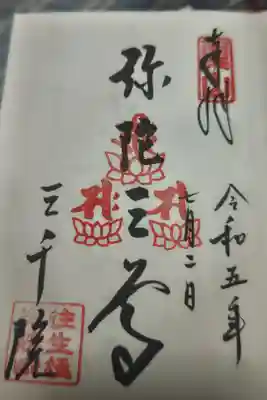 奉拝
令和五年
七月二日
弥陀三尊
三千院
往生極